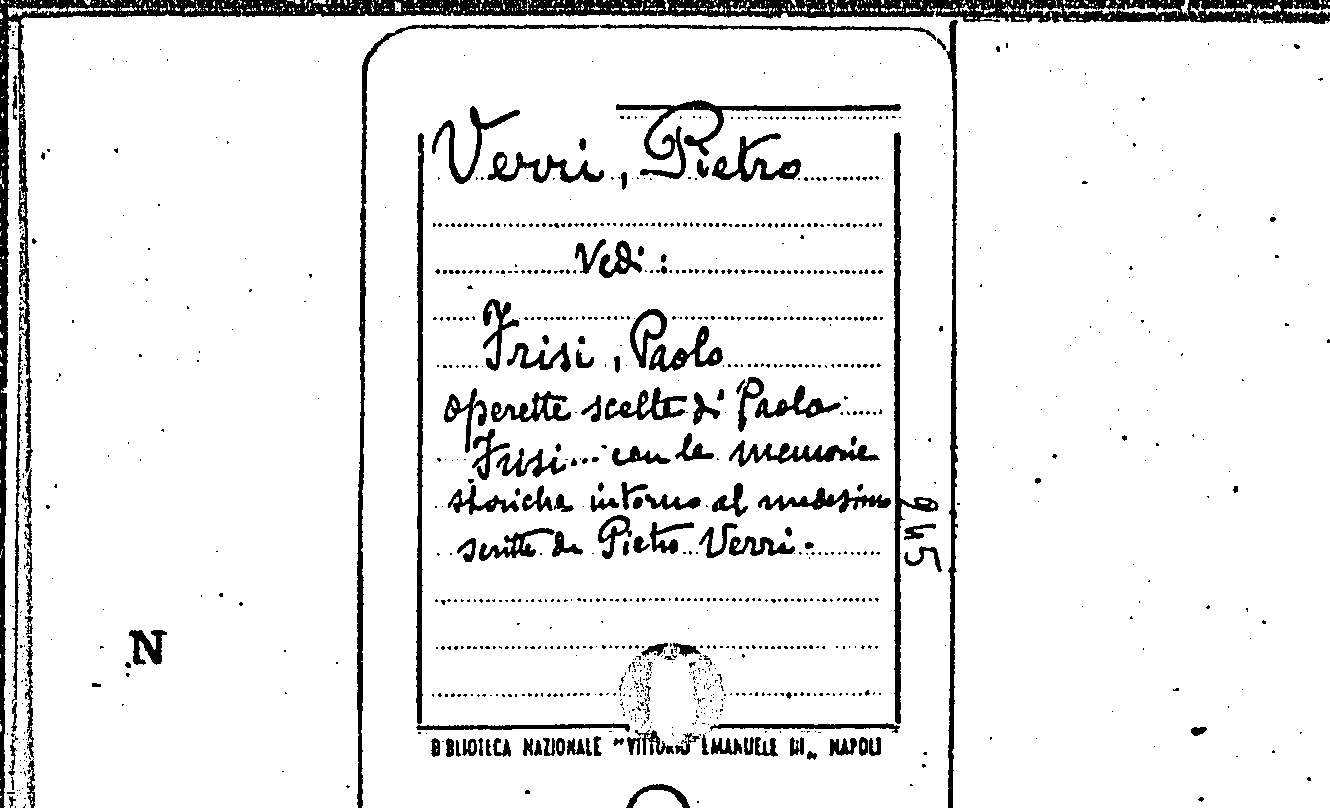 Verri, Pietro
Vedi:
Frisi, Paolo
Operette scelte di Paolo
Frisi... con le memorie
storiche intorno al medesimo
scritte da Pietro Verri.
945
N
BIBLIOTECA NAZIONALE "VITTORIO EMANUELE III„ NAPOLI